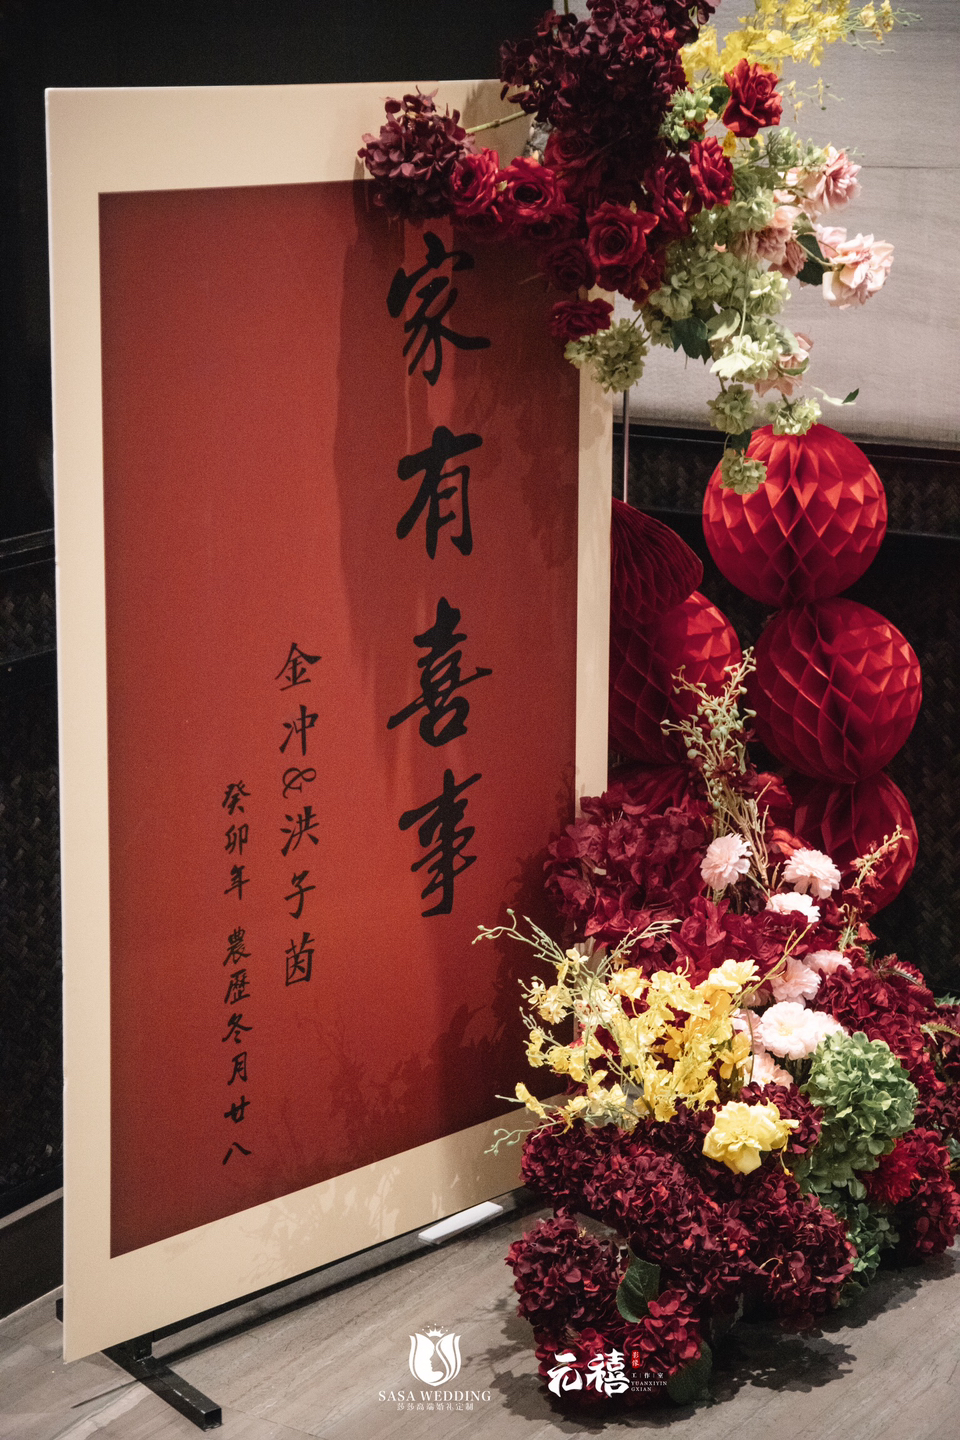 家有喜事
金冲&洪子茵
癸卯年 農歷冬月廿八
SASA WEDDING
莎莎高端婚礼定制
元禧
影像
工作室
YUANXIYIN
GXIAN